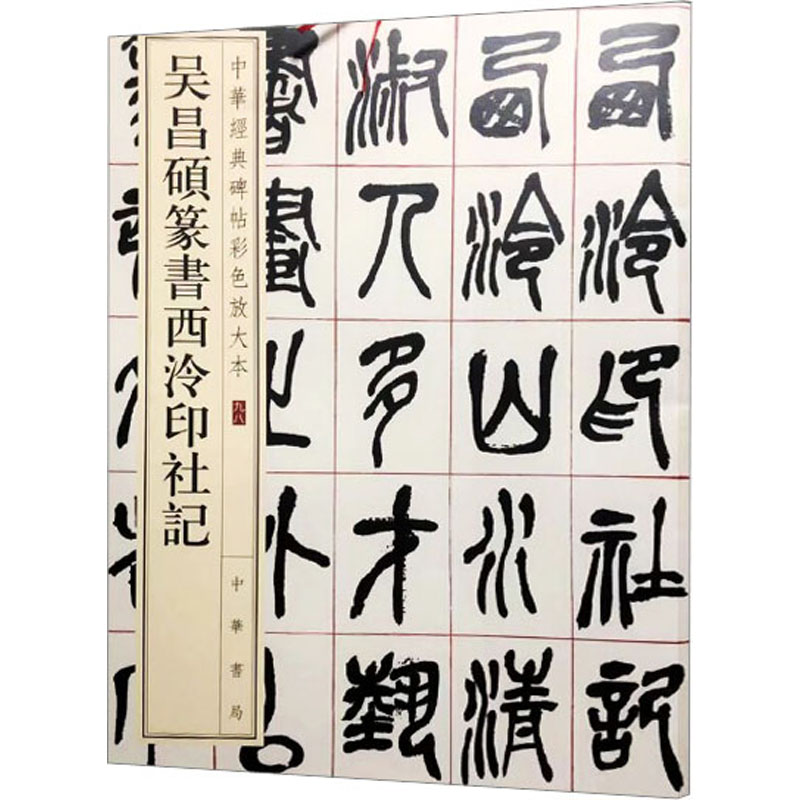 吴昌碩篆書西泠印社記
中華經典碑帖彩色放大本
九八
中華書局
西泠印社記
西泠山水清
淑人多才藝
書畫之外以